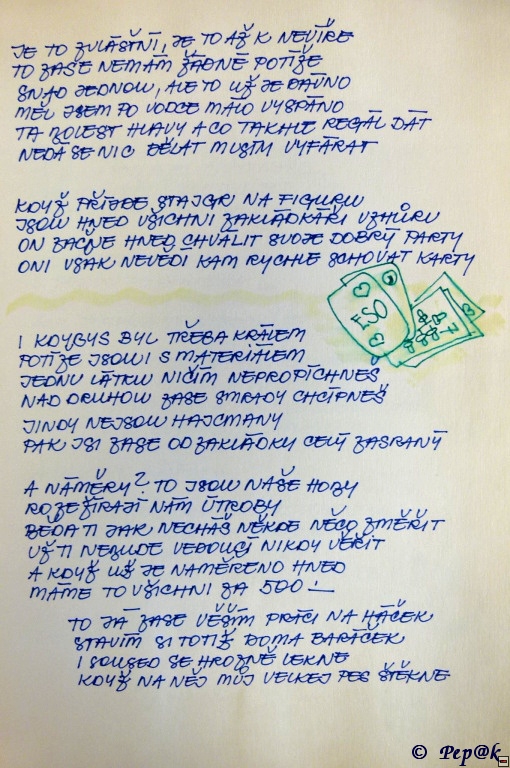 JE TO ZVLÁŠTNÍ, JE TO AŽ K NEVÍŘE
TO ZASE NEMÁM ŽÁDNÉ POTÍŽE
SNAD JEDNOU, ALE TO UŽ JE DÁVNO
MĚL JSEM PO VODCE MÁLO VYSPÁNO
TA BOLEST HLAVY A CO TAKHLE REGÁL DÁT
NEDÁ SE NIC DĚLAT MUSÍM VYFÁRAT
KDYŽ PŘIJDE ŠTAJGR NA FIGURU
JSOU HNED VŠICHNI ZAKLÁDKÁŘI VZHŮRU
ON ZAČNE HNED CHVÁLIT SVOJE DOBRÝ PARTY
ONI VŠAK NEVĚDÍ KAM RYCHLE SCHOVAT KARTY
ESO
I KDYBYS BYL TŘEBA KRÁLEM
POTÍŽE JSOU I S MATERIÁLEM
JEDNU LÁTKU NIČÍM NEPROPÍCHNEŠ
NAD DRUHOU ZASE SMRADY CHCÍPNEŠ
JINDY NEJSOU HAJCMANY
PAK JSI ZASE OD ZAKLÁDKY CELÝ ZASRANÝ
A NÁMĚRY? TO JSOU NAŠE HOBY
ROZEŽÍRAJÍ NÁM ÚTROBY
BĚDA TI JAK NECHÁŠ NĚKDE NĚCO ZMĚŘIT
UŽ TI NEBUDE VEDOUCÍ NIKDY VĚŘIT
A KDYŽ UŽ JE NAMĚŘENO HNED
MÁME TO VŠICHNI ZA 500 !
TO JÁ ZASE VĚŠÍM PRÁCI NA HÁČEK
STAVÍM SI TOTIŽ DOMA BARÁČEK
I SOUSED SE HROZNĚ LEKNE
KDYŽ NA NĚJ MŮJ VELKEJ PES ŠTĚKNE
© Pep@k